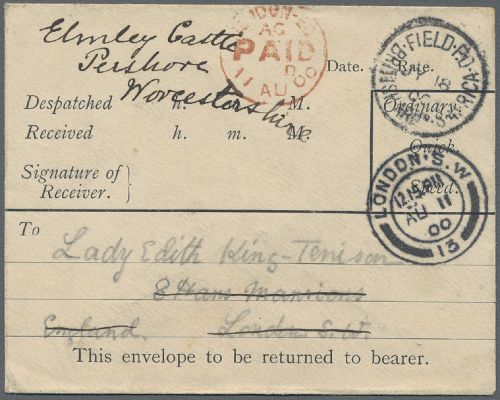 Elmley Castle
Pershore
Worcestershire
PAID
11 AU 00
FIELD·P.O.
BRITISH
S·AFRICA
18
Date. Rate.
Despatched h. M. Ordinary.
Received h. m. M. Quick.
Signature of
Receiver. Speed.
LONDON·S.W
12.15AM
AU 11
00
13
To
Lady Edith King-Tenison
8 Hans Mansions
England. London S.W.
This envelope to be returned to bearer.